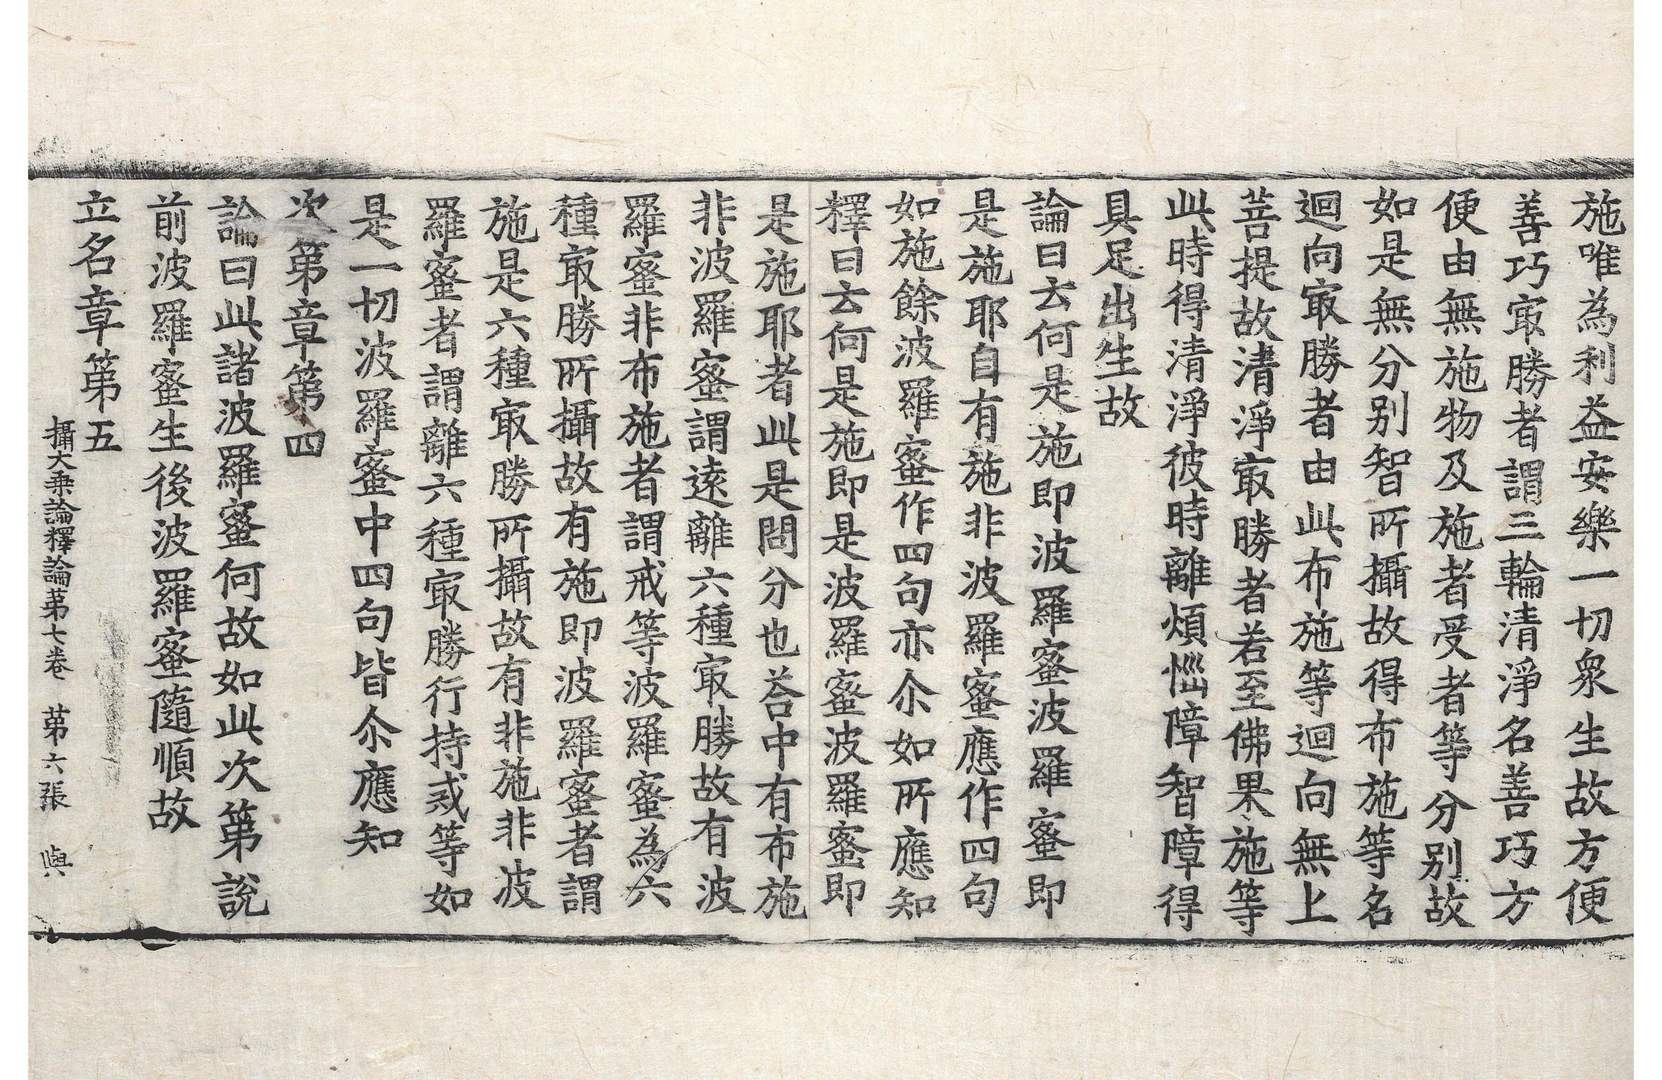 施唯為利益安樂一切衆生故方便
善巧冣勝者謂三輪清淨名善巧方
便由無施物及施者受者等分别故
如是無分别智所攝故得布施等名
迴向冣勝者由此布施等迴向無上
菩提故清淨冣勝者若至佛果施等
此時得清淨彼時離煩惱障智障得
具足出生故
論曰云何是施即波羅蜜波羅蜜即
是施耶自有施非波羅蜜應作四句
如施餘波羅蜜作四句亦尒如所應知
釋曰云何是施即是波羅蜜波羅蜜即
是施耶者此是問分也荅中有布施
非波羅蜜謂遠離六種冣勝故有波
羅蜜非布施者謂戒等波羅蜜為六
種冣勝所攝故有施即波羅蜜者謂
施是六種冣勝所攝故有非施非波
羅蜜者謂離六種冣勝行持戒等如
是一切波羅蜜中四句皆尒應知
次第章第四
論曰此諸波羅蜜何故如此次第說
前波羅蜜生後波羅蜜隨順故
立名章第五
攝大乗論釋論第七卷 第六張 與